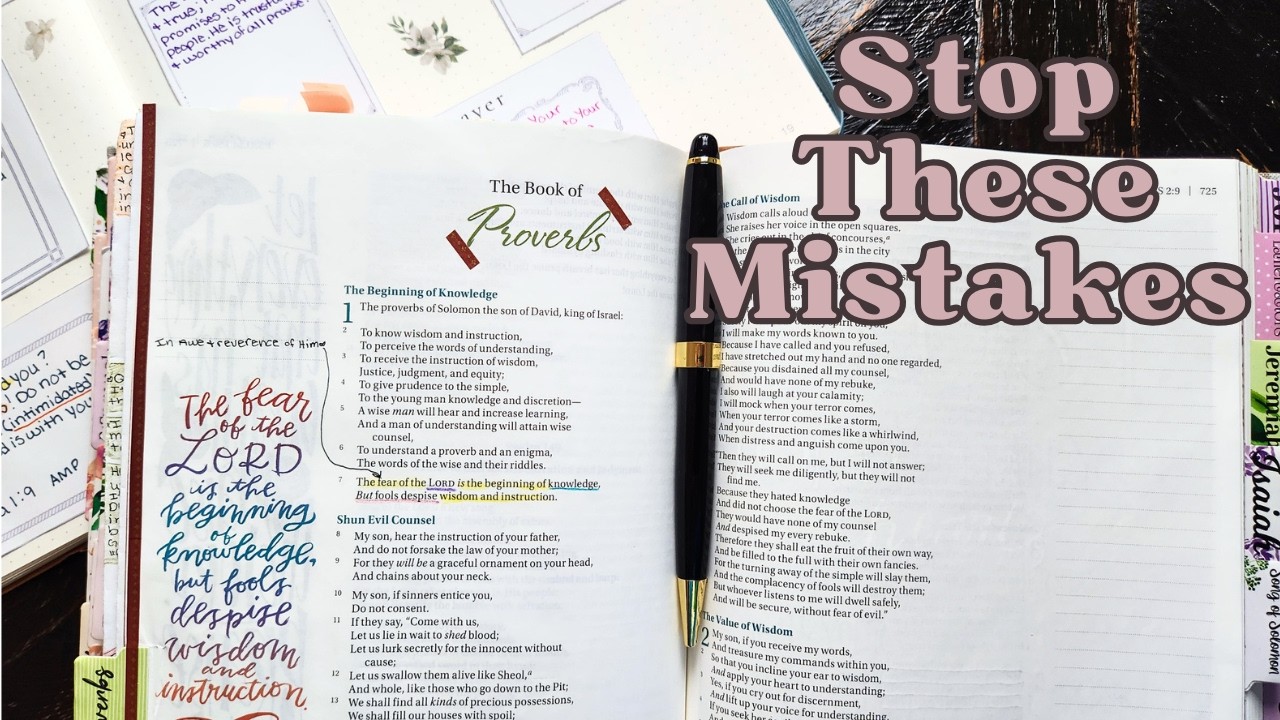 Stop
These
Mistakes
promises to
people. He is
+ worthy of all praise.
your
to your
you?
Do not be
intimidated
d is with you
1:9 AMP
The Book of
Proverbs
The Beginning of Knowledge
1 The proverbs of Solomon the son of David, king of Israel:
2 To know wisdom and instruction,
To perceive the words of understanding,
3 To receive the instruction of wisdom,
Justice, judgment, and equity;
4 To give prudence to the simple,
To the young man knowledge and discretion—
5 A wise man will hear and increase learning,
And a man of understanding will attain wise
counsel,
6 To understand a proverb and an enigma,
The words of the wise and their riddles.
7 The fear of the LORD is the beginning of knowledge,
But fools despise wisdom and instruction.
In Awe + reverence of Him
The fear
of the
LORD
is the
beginning
of
knowledge,
but fools
despise
wisdom
and
instruction.
Shun Evil Counsel
8 My son, hear the instruction of your father,
And do not forsake the law of your mother;
9 For they will be a graceful ornament on your head,
And chains about your neck.
10 My son, if sinners entice you,
Do not consent.
11 If they say, "Come with us,
Let us lie in wait to shed blood;
Let us lurk secretly for the innocent without
cause;
12 Let us swallow them alive like Sheol,a
And whole, like those who go down to the Pit;
13 We shall find all kinds of precious possessions,
We shall fill our houses with spoil;
2:9 | 725
Call of Wisdom
Wisdom calls aloud
She raises her voice in the open squares.
She cries out in the of concourses,a
in the city
I will make my words known to you.
Because I have called and you refused,
I have stretched out my hand and no one regarded,
Because you disdained all my counsel,
And would have none of my rebuke,
I also will laugh at your calamity;
I will mock when your terror comes,
When your terror comes like a storm,
And your destruction comes like a whirlwind,
When distress and anguish come upon you.
"Then they will call on me, but I will not answer;
They will seek me diligently, but they will not
find me.
Because they hated knowledge
And did not choose the fear of the LORD,
They would have none of my counsel
And despised my every rebuke.
Therefore they shall eat the fruit of their own way,
And be filled to the full with their own fancies.
For the turning away of the simple will slay them,
And the complacency of fools will destroy them;
But whoever listens to me will dwell safely,
And will be secure, without fear of evil."
The Value of Wisdom
2 My son, if you receive my words,
And treasure my commands within you,
So that you incline your ear to wisdom,
And apply your heart to understanding;
Yes, if you cry out for discernment,
And lift up your voice for understanding,
If you seek her
Jeremiah
Isaiah
Song of Solomon